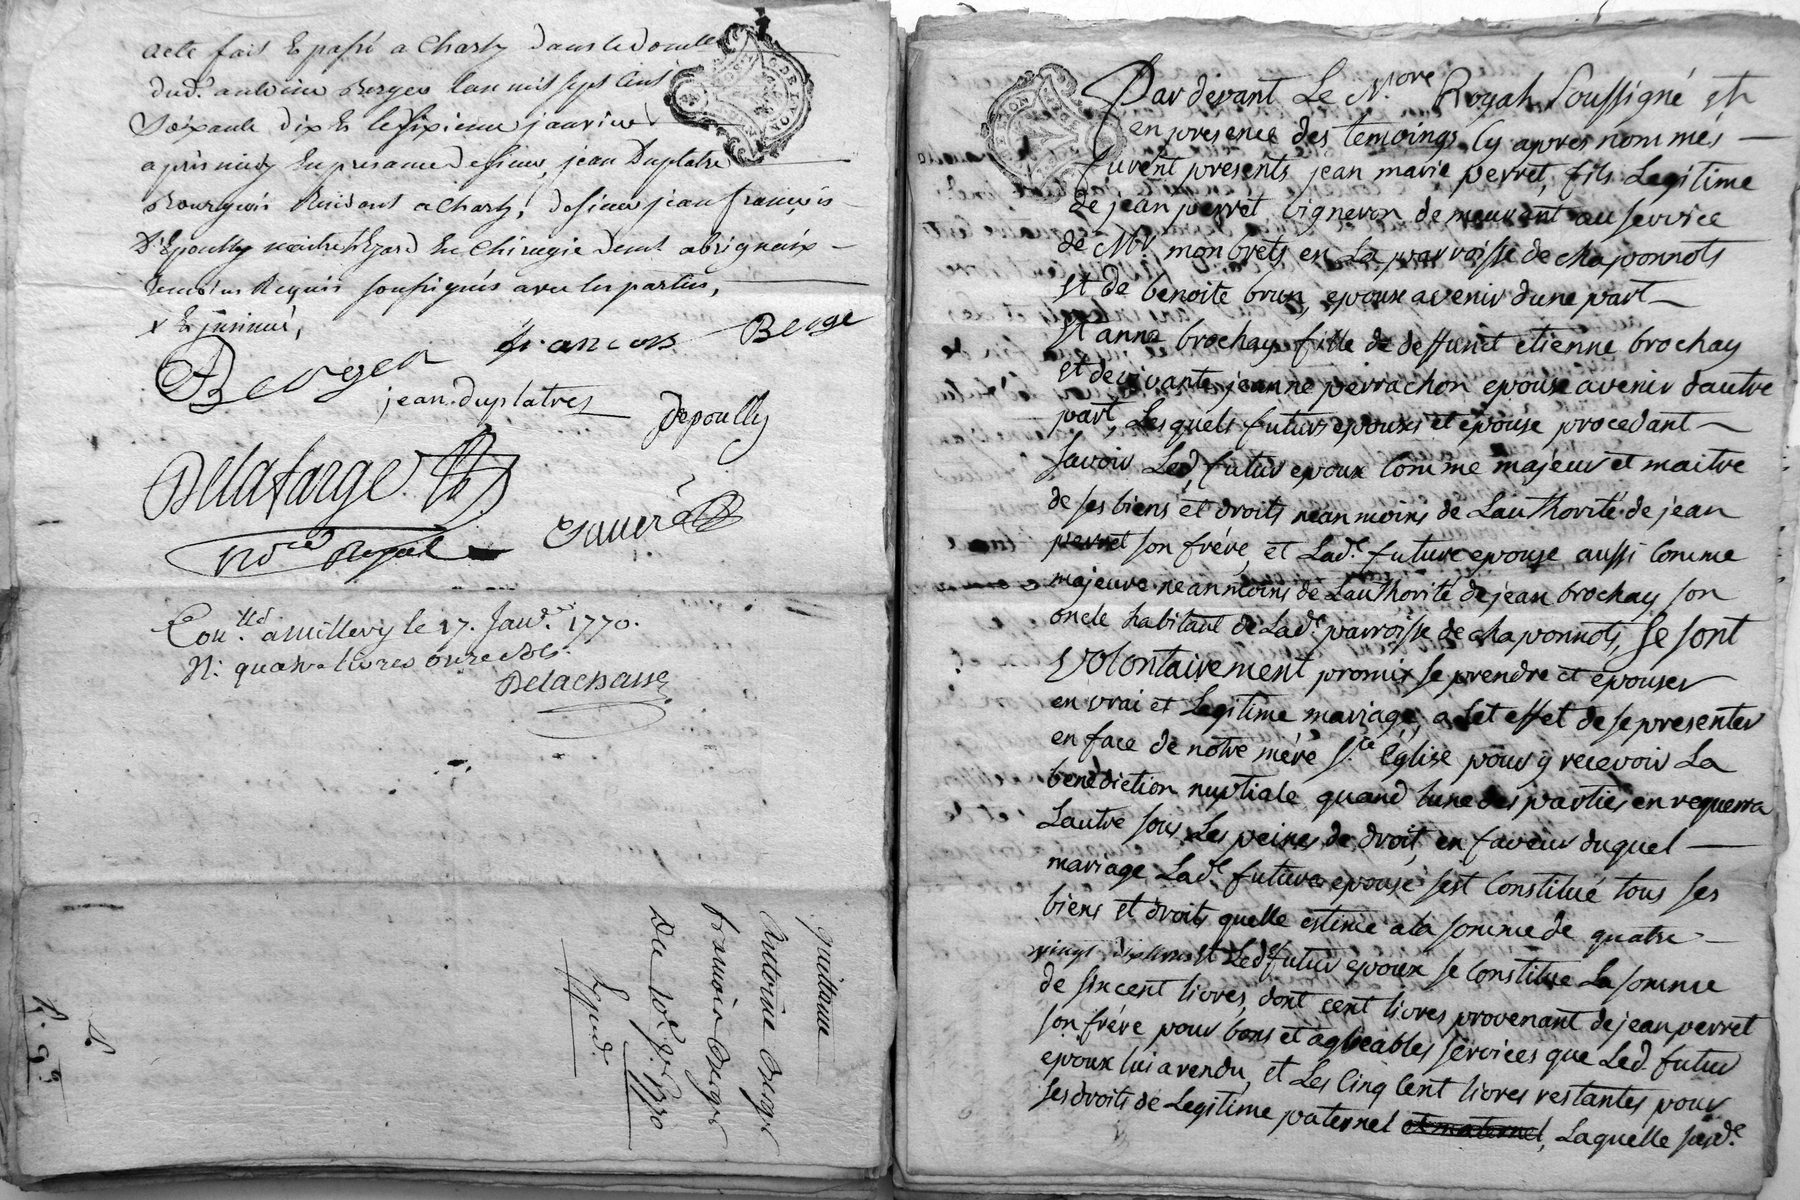 acte fait & passé a Charly dans le domicile
dud. antoine Berger lan mil sept cent
soixante dix & le sixieme janvier
apres midy en presance de sieur jean Duplatre
Bourgeois Residant a Charly, & de sieur jean françois
Depoully maitre juré en Chirurgie dem.t a
temoins Requis soussignés avec les parties,
Berger francois Berge
jean duplatres Depoully
Delafarge
No.re Royal
Con.llé a Millery le 17. Janv.er 1770.
R. quatre livres onze s
Delachasse
quittance
Antoine Berger
francois Berger
Du 10.e j.er 1770
Exped.
Par devant Le N.ore Royal Soussigné et
en presence des temoings Cy apres nommés
furent presents jean marie perret, fils Legitime
de jean perret vigneron demeurant au service
de Mr. monbrets en La parroisse de chaponnots
et de benoite brun, epoux avenir dune part
et anne brochay fille de deffunct etienne brochay
et de vivante jeanne perrachon epouse avenir dautre
part, Les quels futurs epoux et epouse procedant
savoir Led. futur epoux Comme majeur et maitre
de ses biens et droits neanmoins de Lauthorité de jean
perret son frére, et Lad.e future epouse aussi Comme
majeure neanmoins de Lauthorité de jean brochay son
oncle habitant de Lad.e parroisse de chaponnots, Se sont
volontairement promis se prendre et epouser
en vrai et Legitime mariage, a Cet effet de se presenter
en face de notre mére S.te Eglise pour y recevoir La
benédiction nuptiale quand lune des parties en requerra
Lautre sous Les peines de droit, en faveur duquel
mariage Lad.e future epouse sest Constitué tous ses
biens et droits quelle estime ala somme de quatre
vingt dix livres et Led. futur epoux se Constitue La somme
de sixcent livres, dont cent livres provenant de jean perret
son frére pour bons et agréables services que Led. futur
epoux lui a rendu, et Les Cinq Cent livres restantes pour
ses droits de Legitime paternel et maternel, Laquelle susd.e